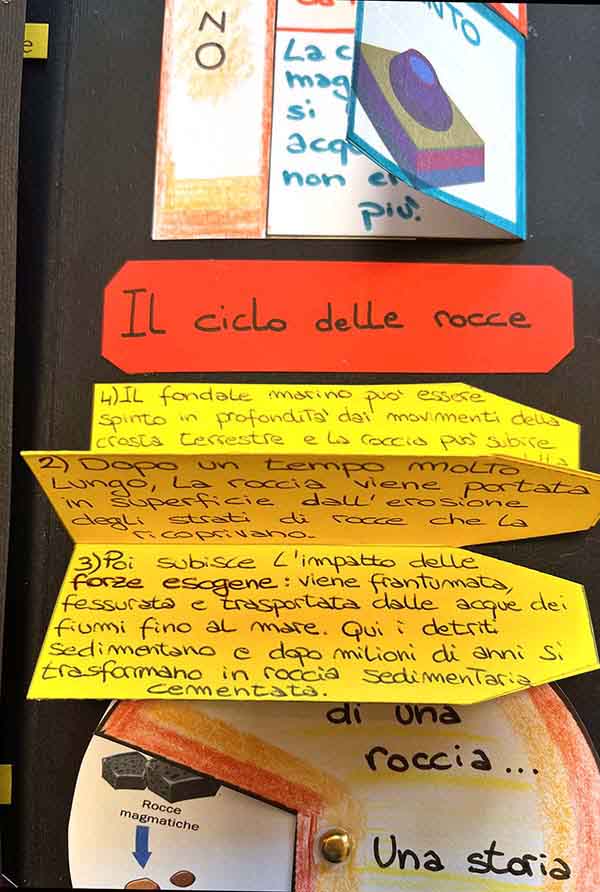 NO
NTO
La c
mag
si
acq
non e
più?
e
Il ciclo delle rocce
4) Il fondale marino puo' essere
spinto in profondita' dai movimenti della
crosta terrestre e la roccia puo' subire
2) Dopo un tempo molto
lungo, la roccia viene portata
in superficie dall'erosione
degli strati di rocce che la
ricoprivano.
3) Poi subisce l'impatto delle
forze esogene: viene frantumata,
fessurata e trasportata dalle acque dei
fiumi fino al mare. Qui i detriti
sedimentano e dopo milioni di anni si
trasformano in roccia sedimentaria
cementata.
di una
roccia...
Rocce
magmatiche
Una storia